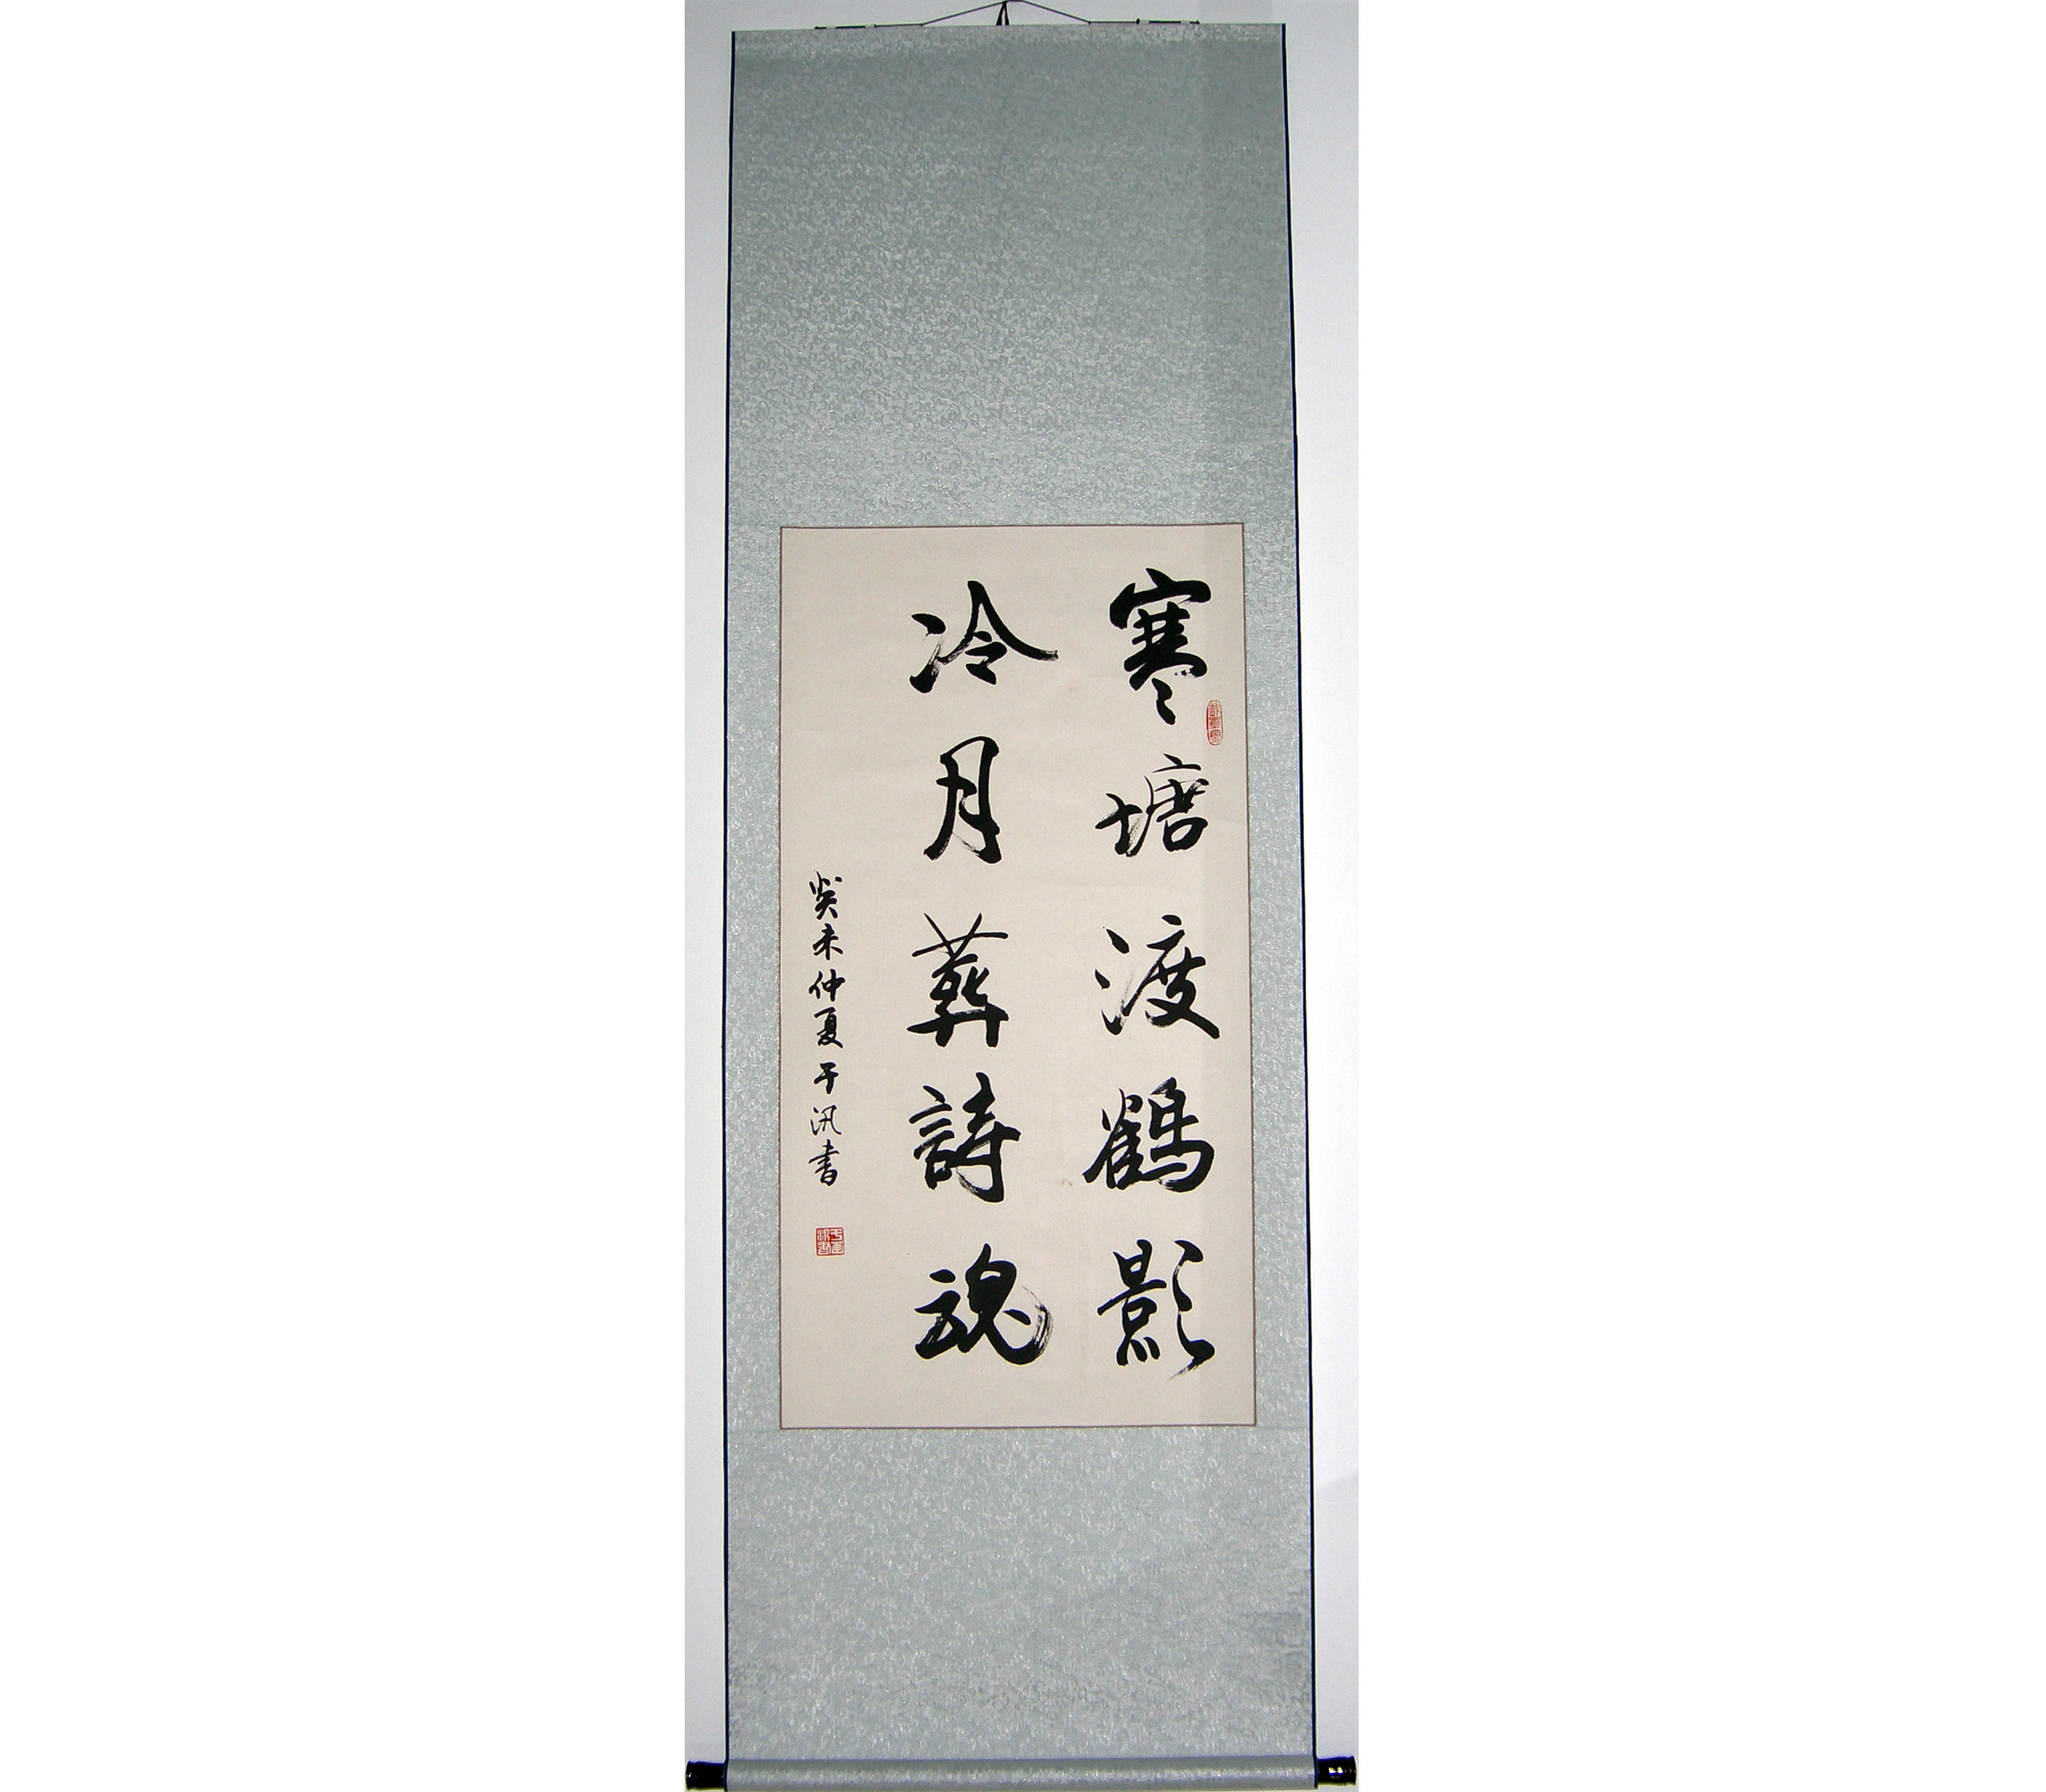 寒塘渡鶴影
冷月葬詩魂
癸未仲夏于汛书